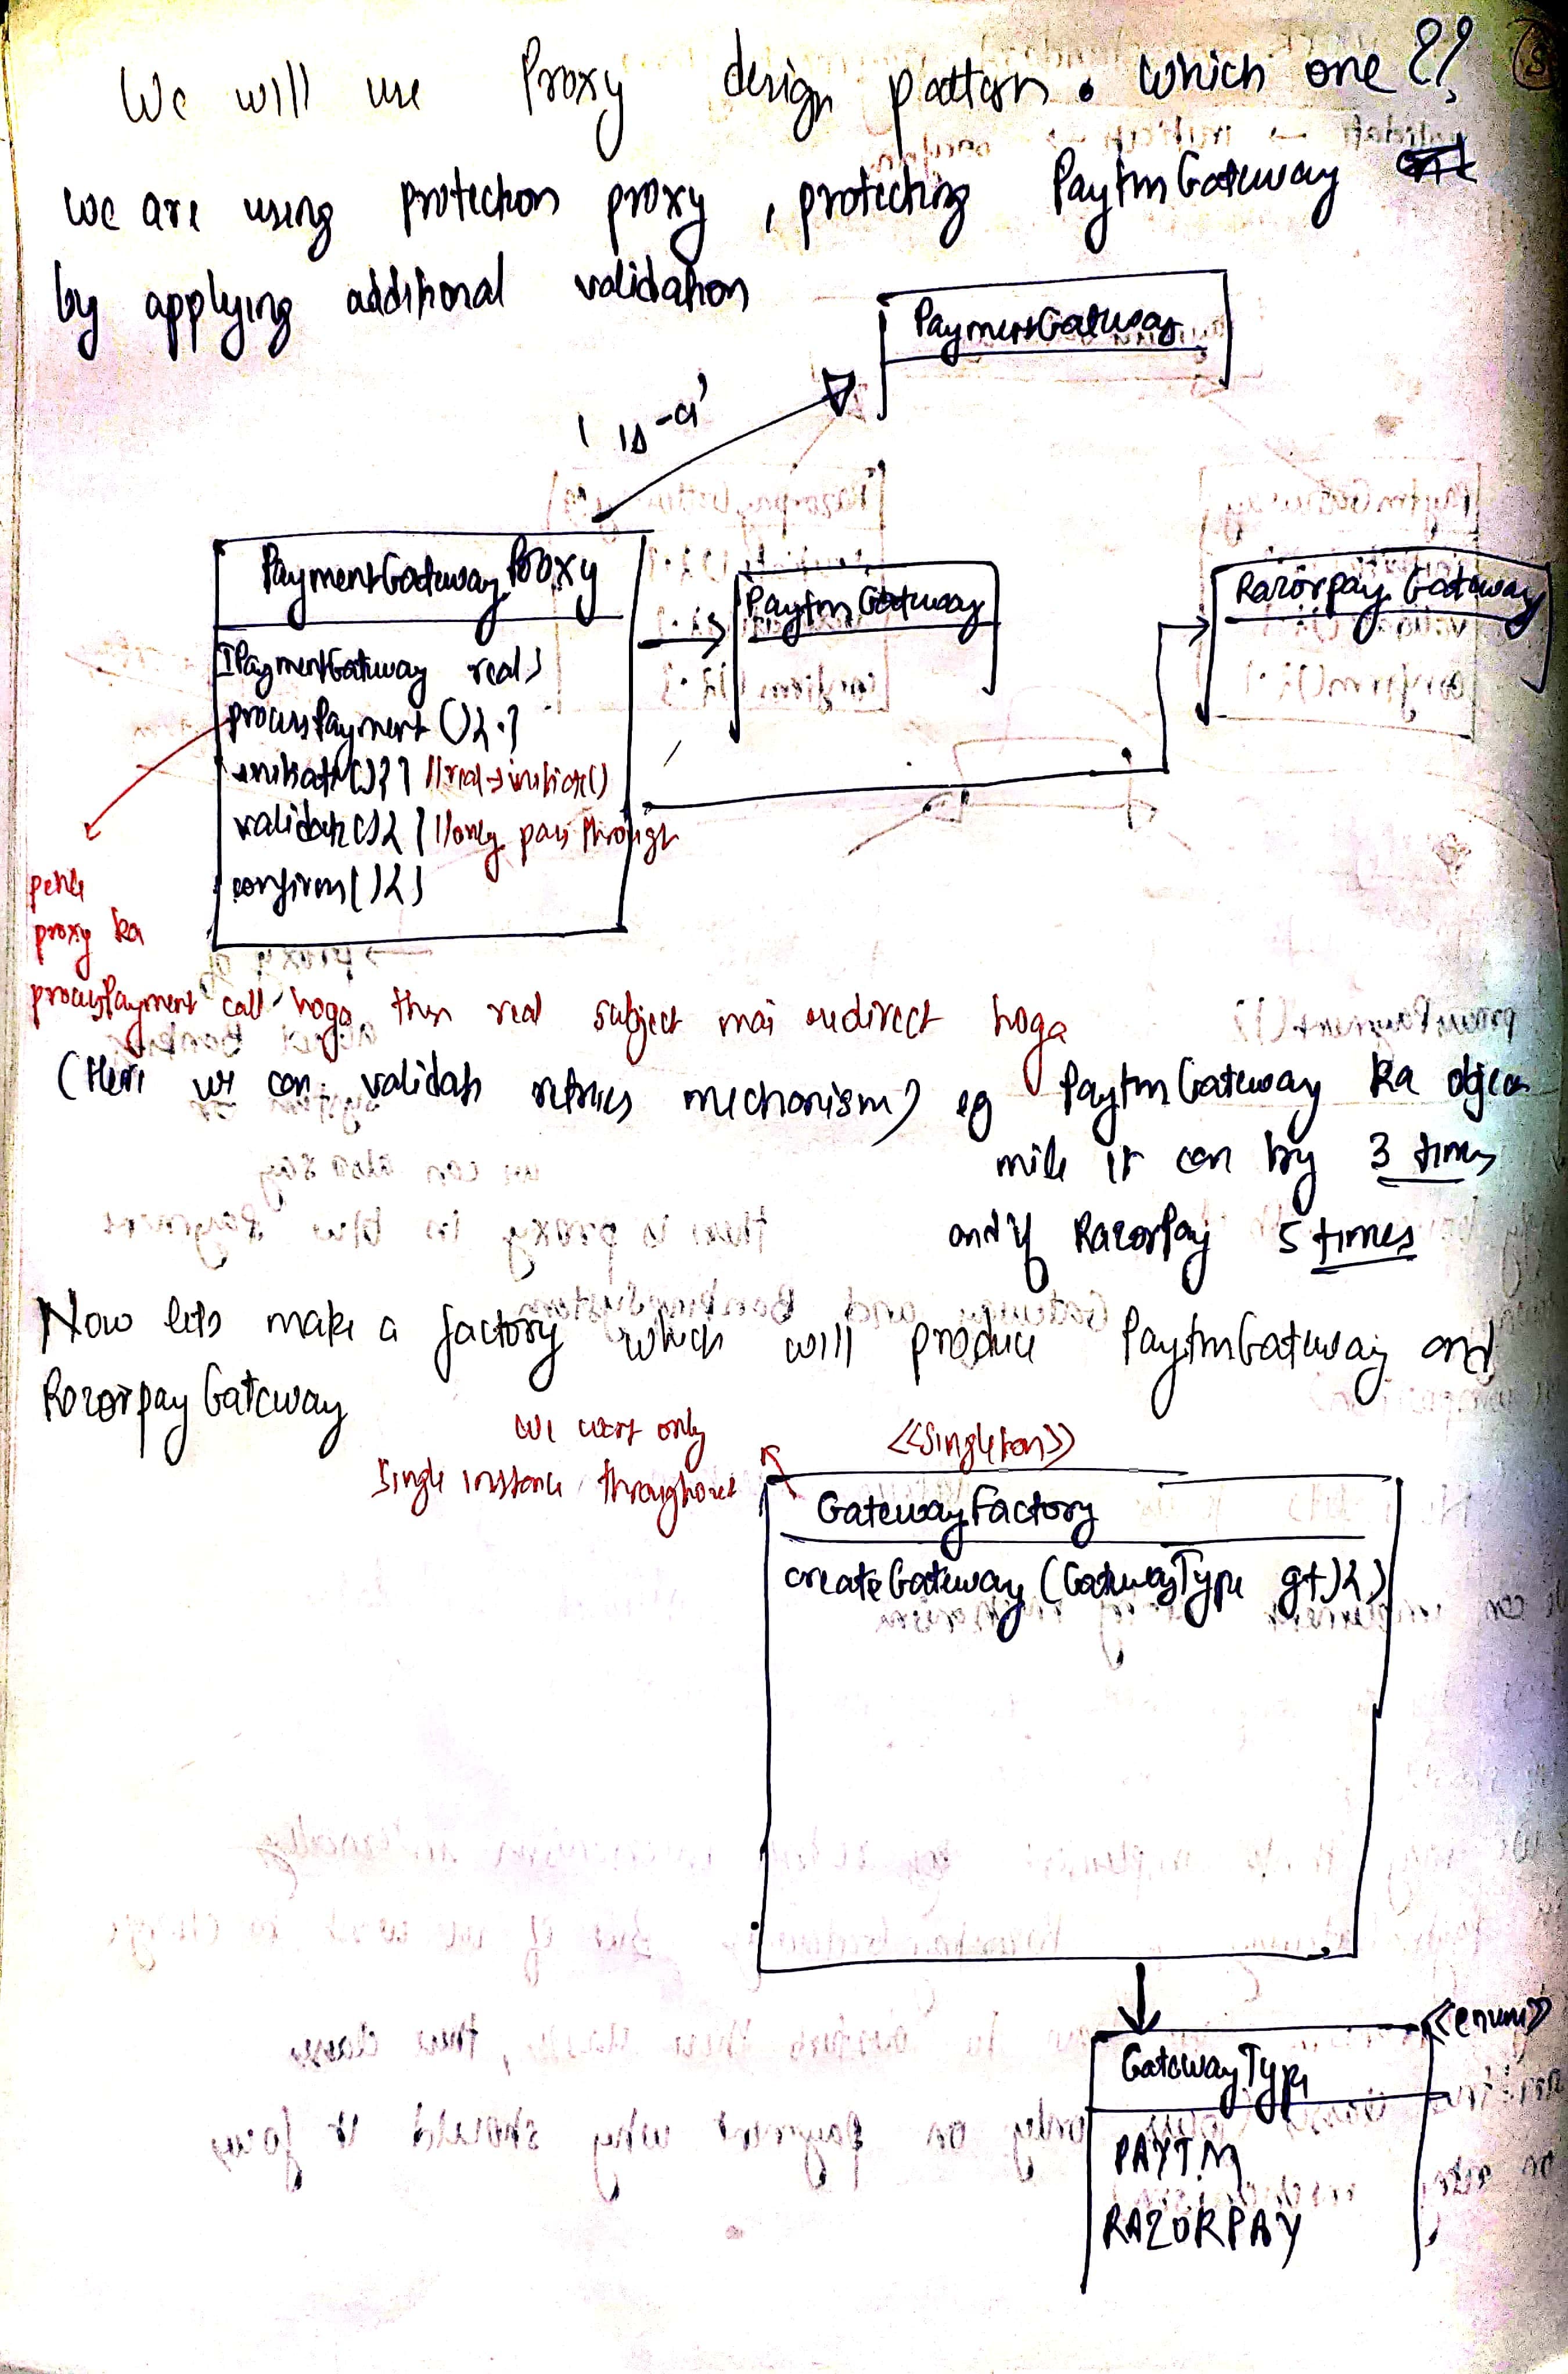 We will use Proxy design pattern. Which one ??
we are using protection proxy, protecting PaytmGateway
by applying additional validation
PaymentGateway
'is-a'
PaymentGateway Proxy
Paytm Gateway
Razorpay Gateway
IPaymentGateway real;
processPayment(){.}
initiate(){} //real→initiate()
validate(){} //only pass through
confirm(){}
pehle
proxy ka
processPayment call hoga then real subject mai redirect hoga
(Here we can validate retries mechanism) eg PaytmGateway ka object
mile it can try 3 times
and if RazorPay 5 times
Now lets make a factory which will produce PaytmGateway and
RazorpayGateway
we want only
single instance throughout
<<Singleton>>
GatewayFactory
createGateway (GatewayType gt){}
<<enum>>
GatewayType
PAYTM
RAZORPAY